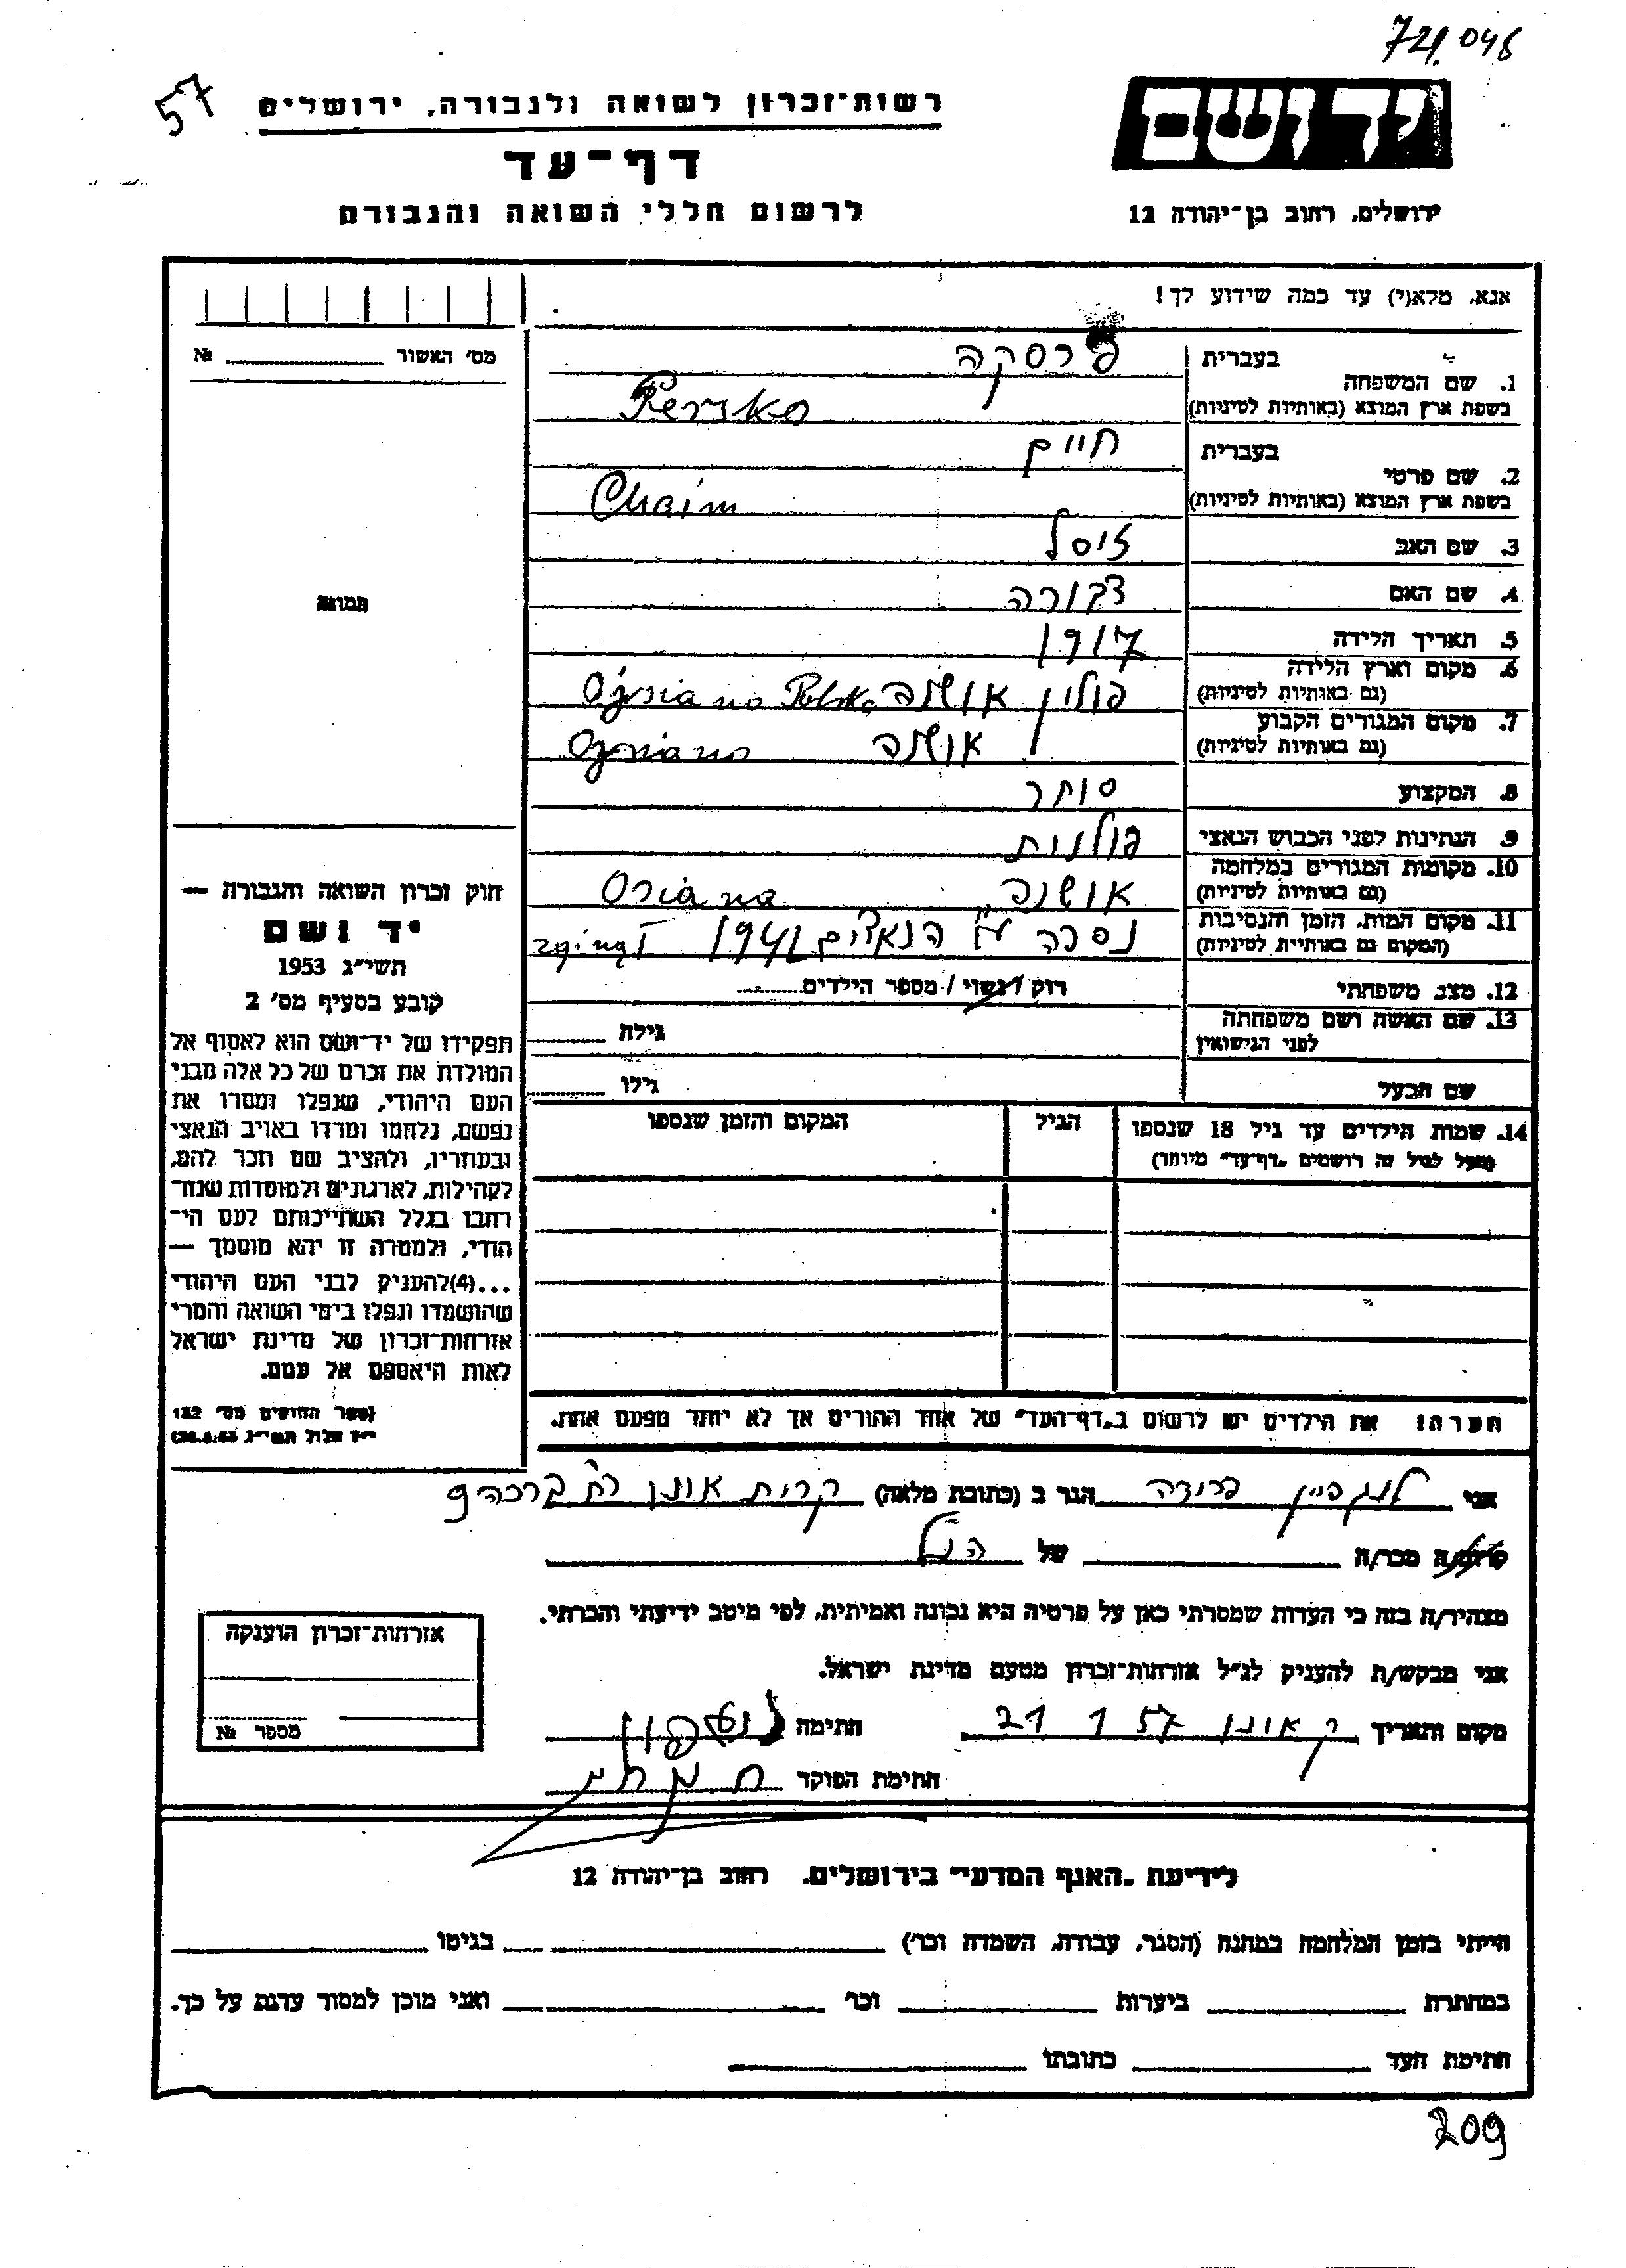 724.046
57
רשות־זכרון לשואה ולגבורה, ירושלים
יד ושם
דף־עד
לרשום חללי השואה והגבורה
ירושלים, רחוב בן־יהודה 12
אנא, מלא(י) עד כמה שידוע לך!
מס' האשור № ............
1. שם המשפחה בעברית פרסקה
בשפת ארץ המוצא (באותיות לטיניות) Persko
2. שם פרטי בעברית חיים
בשפת ארץ המוצא (באותיות לטיניות) Chaim
3. שם האב זוסל
4. שם האם דבורה
תמונה
5. תאריך הלידה 1917
6. מקום וארץ הלידה
(גם באותיות לטיניות) פולין אושנה Polska
7. מקום המגורים הקבוע
(גם באותיות לטיניות) אושנה
8. המקצוע סוחר
9. הנתינות לפני הכבוש הנאצי פולנית
10. מקומות המגורים במלחמה
(גם באותיות לטיניות) אושנה Osiana
11. מקום המות, הזמן והנסיבות
(המקום גם באותיות לטיניות) נספה ע"י הנאצים 1941 zginął
12. מצב משפחתי רוק / נשוי / מספר הילדים........
13. שם האשה ושם משפחתה
לפני הנישואין גילה
שם הבעל גילו
14. שמות הילדים עד גיל 18 שנספו הגיל המקום והזמן שנספו
(מעל לגיל זה רושמים „דף־עד" מיוחד)
חוק זכרון השואה והגבורה —
יד ושם
תשי"ג 1953
קובע בסעיף מס' 2
תפקידו של יד־ושם הוא לאסוף אל
המולדת את זכרם של כל אלה מבני
העם היהודי, שנפלו ומסרו את
נפשם, נלחמו ומרדו באויב הנאצי
ובעוזריו, ולהציב שם וזכר להם,
לקהילות, לארגונים ולמוסדות שנח־
רבו בגלל השתייכותם לעם הי־
הודי, ולמטרה זו יהא מוסמך —
...(4)להעניק לבני העם היהודי
שהושמדו ונפלו בימי השואה והמרי
אזרחות־זכרון של מדינת ישראל
לאות היאספם אל עמם.
(ספר החוקים מס' 132
י"ז אלול תשי"ג 28.8.53)
הערה! את הילדים יש לרשום ב„דף־העד" של אחד ההורים אך לא יותר מפעם אחת.
אני פרידה הגר ב (כתובת מלאה) קרית אונו
קרוב/ה מכר/ה של הנ"ל
מצהיר/ה בזה כי העדות שמסרתי כאן על פרטיה היא נכונה ואמיתית, לפי מיטב ידיעתי והכרתי.
אני מבקש/ת להעניק לנ"ל אזרחות־זכרון מטעם מדינת ישראל.
מקום ותאריך ק אונו 21 1 57 חתימה
חתימת הפוקד
אזרחות־זכרון הוענקה
מספר №
לידיעת „האגף המדעי" בירושלים. רחוב בן־יהודה 12
הייתי בזמן המלחמה במחנה (הסגר, עבודה, השמדה וכו') בגיטו
במחתרת ביערות וכו' ואני מוכן למסור עדות על כך.
חתימת העד כתובתו
209